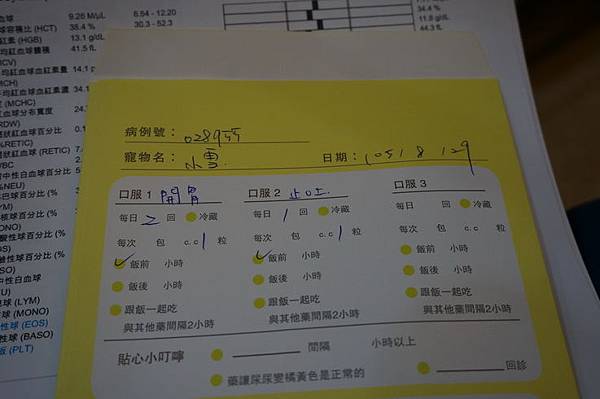 血球 9.26 M/μL 6.54 - 12.20
容積比 (HCT) 38.4 % 30.3 - 52.3
紅素 (HGB) 13.1 g/dL
均紅血球體積 41.5 fL
MCV)
均紅血球血紅素量 14.1 p
MCH)
均紅血球血紅素濃 34.1
(MCHC)
紅血球分布寬度 24.
RDW)
狀紅血球百分比 0.1
%RETIC)
狀紅血球 (RETIC) 7.
34.4 %
11.8 g/dL
44.3 fL
病例號：
寵物名：小雪
日期：105/8/29
口服1 開胃
每日 2 回 冷藏
每次 包 c.c 1 粒
飯前 小時
飯後 小時
跟飯一起吃
與其他藥間隔2小時
口服2 止吐
每日 1 回 冷藏
每次 包 c.c 1 粒
飯前 小時
飯後 小時
跟飯一起吃
與其他藥間隔2小時
口服3
每日 回 冷藏
每次 包 c.c 粒
飯前 小時
飯後 小時
跟飯一起吃
與其他藥間隔2小時
貼心小叮嚀
間隔 小時以上
藥讓尿尿變橘黃色是正常的
回診
中性白血球百分比
%NEU)
巴球百分比 (%
核球百分比 (%
性球百分比 (%
性白血球
球 (LYM)
球 (MONO)
性球 (EOS)
性球 (BASO)
板 (PLT)